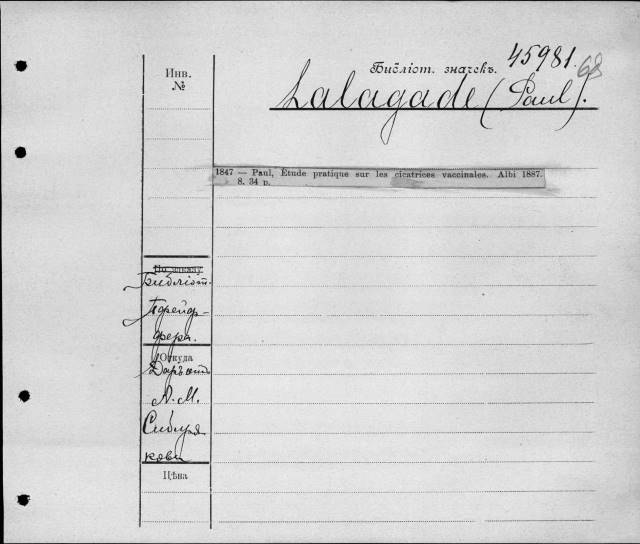 45981.
68
Библіот. значекъ.
Инв.
№
Lalagade (Paul).
1847 — Paul, Etude pratique sur les cicatrices vaccinales. Albi 1887.
8. 34 p.
По заказу
Библіот.
Пфейф-
фера.
Откуда
Даръ отъ
А. М.
Сибиря
кова
Цѣна